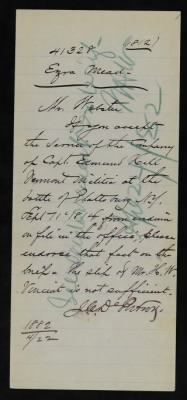 (1812)
41328
Ezra Mead.
Mr. Webster
Do you accept
the service of the company
of Capt. Edmund
Vermont Militia at the
battle of Plattsburg, N.Y.
Sept. 11, 1814 from evidence
on file in the office, please
endorse that fact on the
brief. The slip of Mr. H. W.
Vincent is not sufficient.
1882
4/22